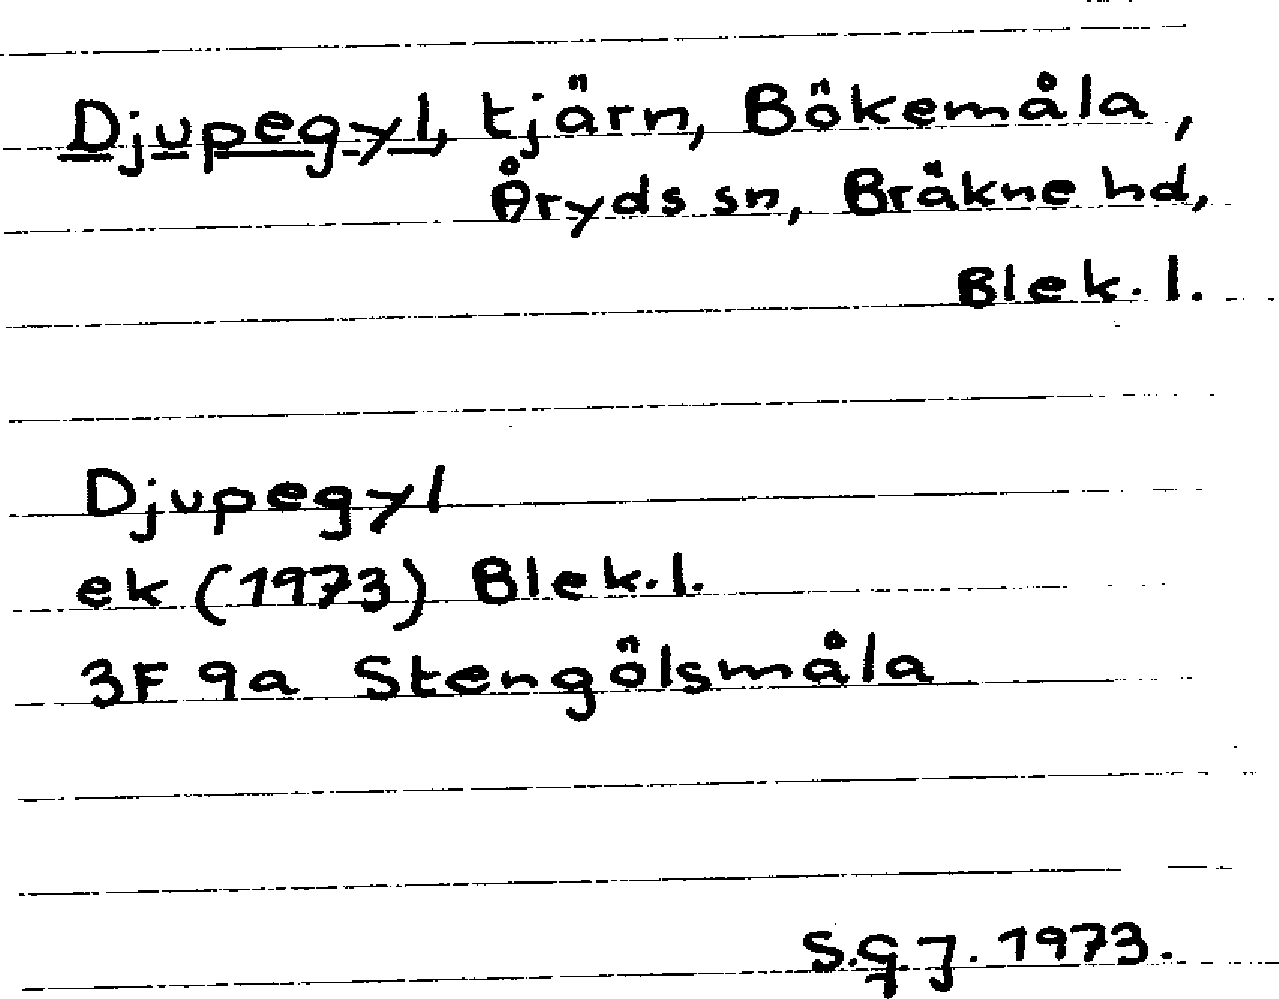 Djupegyl, tjärn, Bökemåla,
Åryds sn, Bräkne hd,
Blek. l.
Djupegyl
ek (1973) Blek. l.
3F 9a Stengölsmåla
S.G.J. 1973.